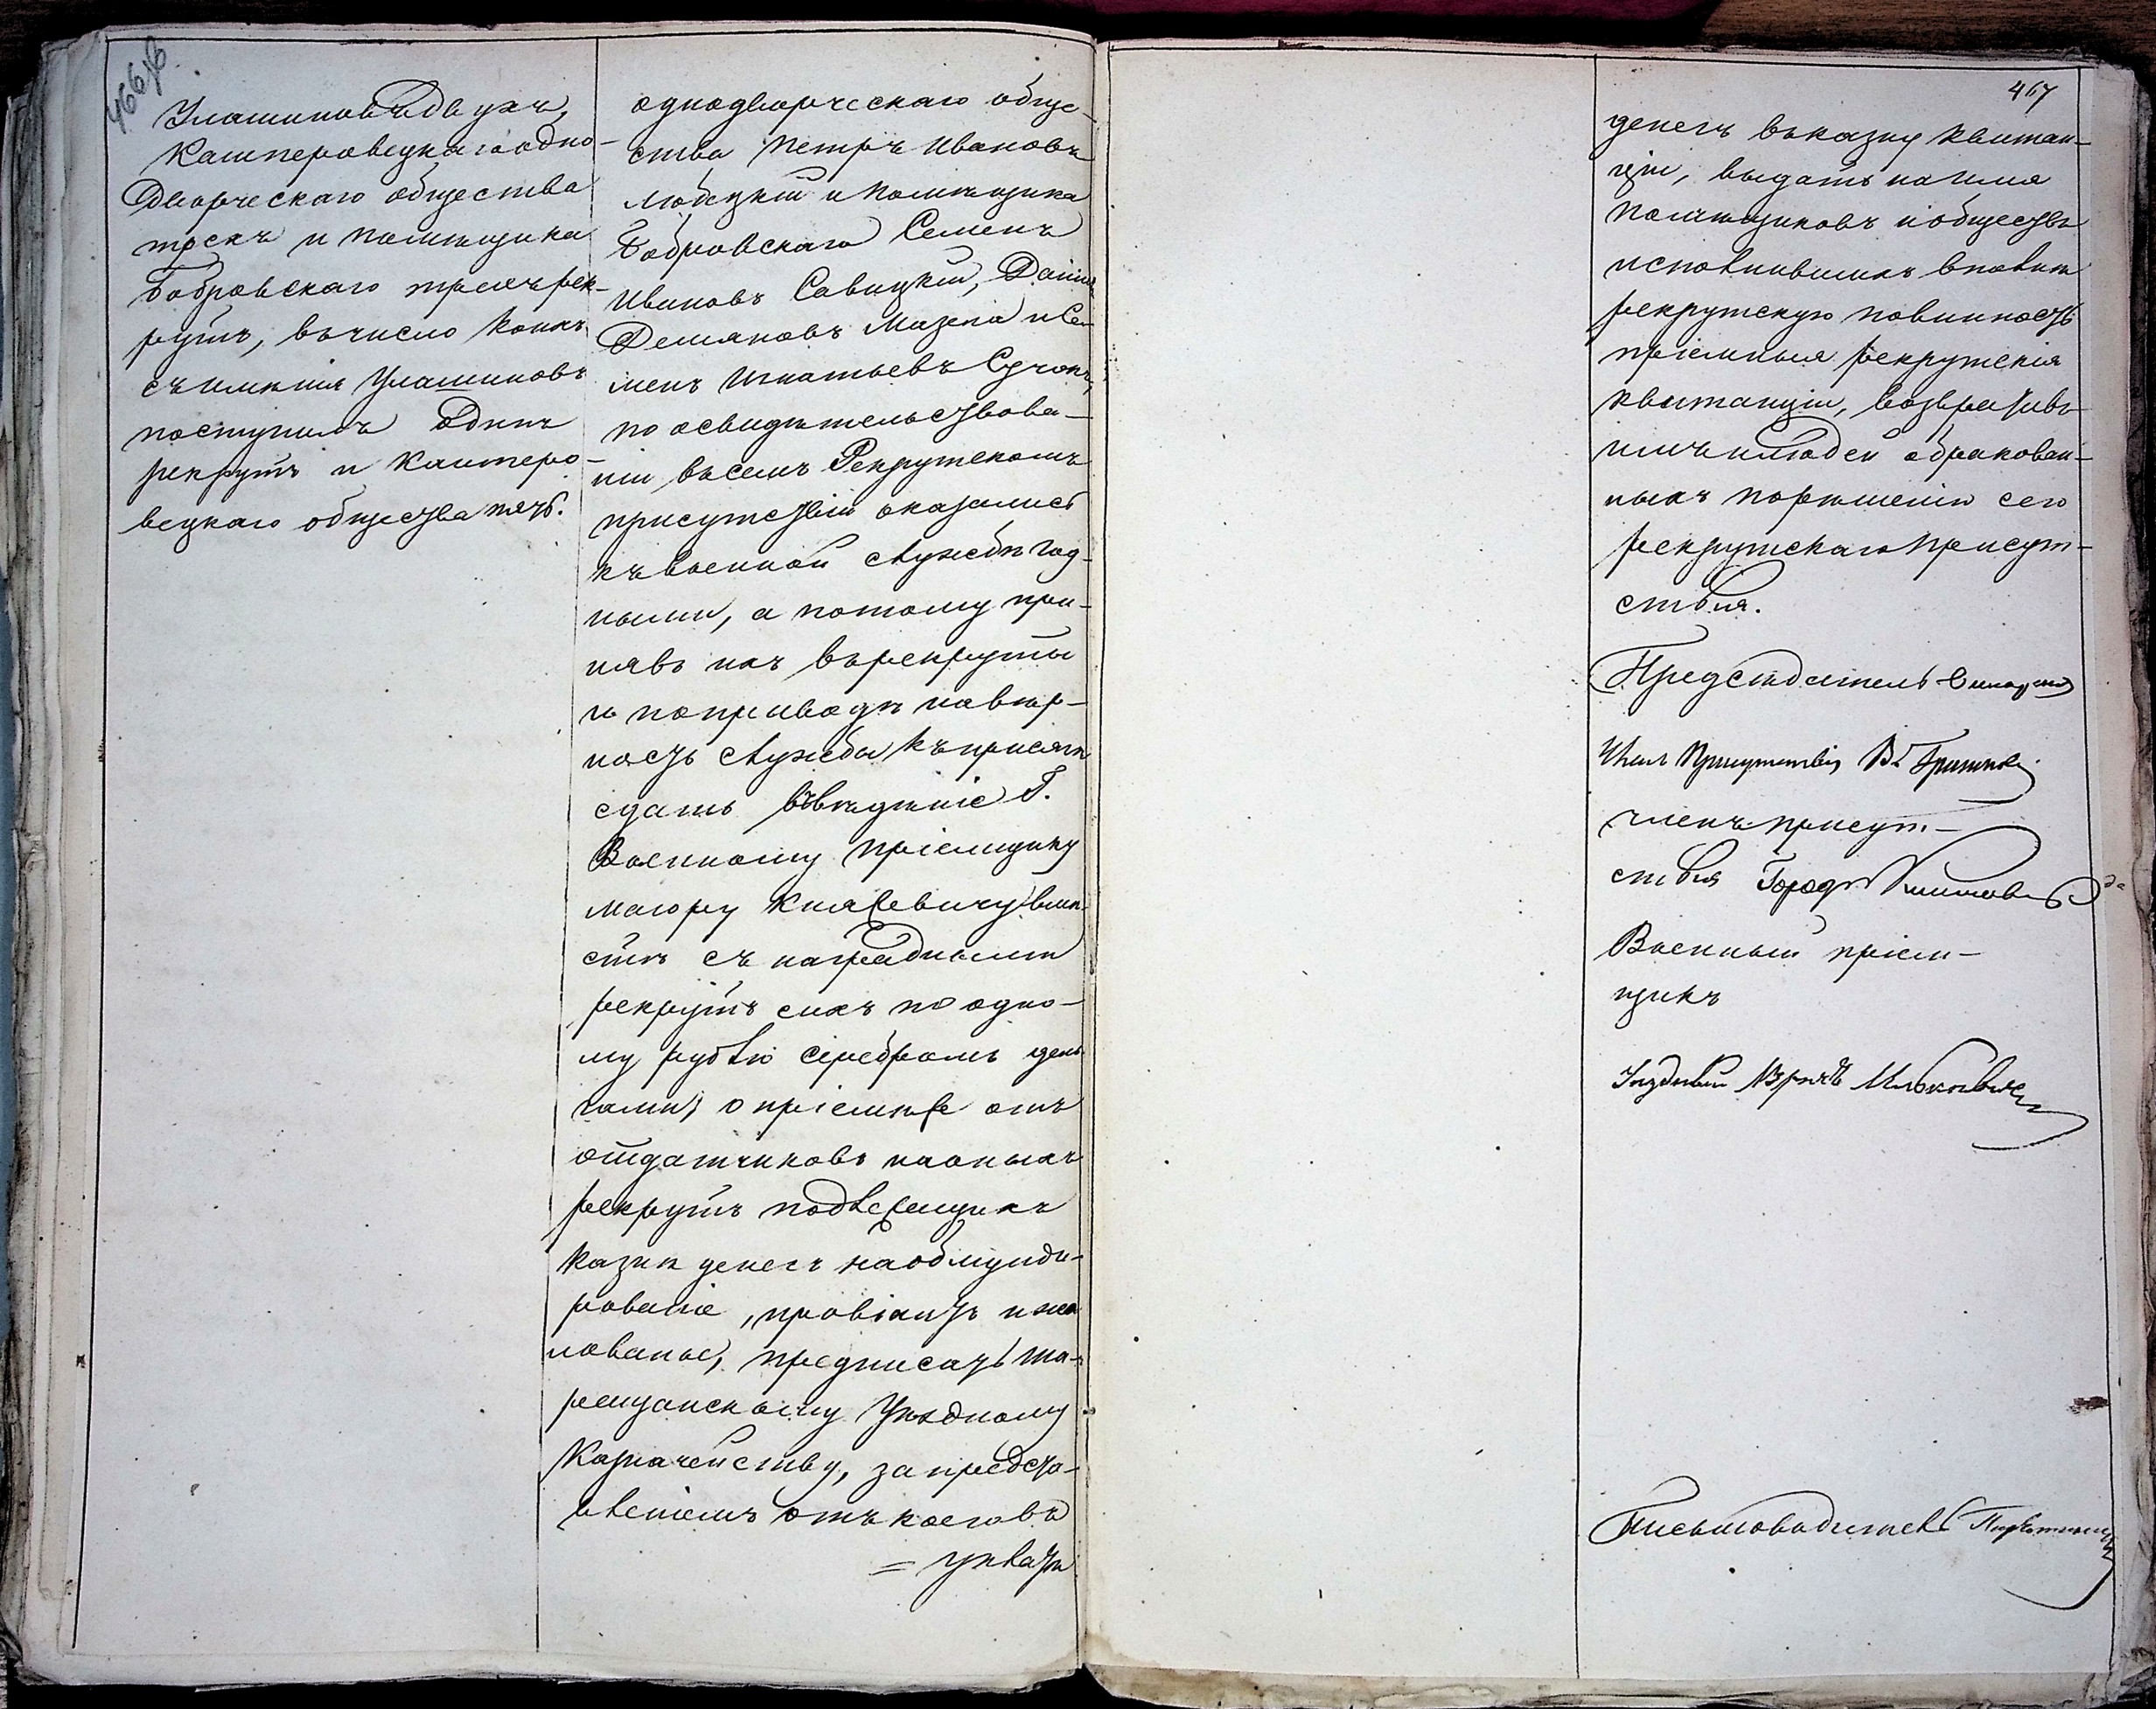 466 об
Улашиновъ двухъ,
Кантеровецкаго одно-
дворческаго общества
трехъ и помѣщика
Бобровскаго трехъ рек-
рутъ, въ число коихъ
съ имѣнія Улашиновъ
поступилъ одинъ
рекрутъ и Кантеро-
вецкаго общества пять.
однодворческаго обще-
ства Петръ Ивановъ
Любецкій и помѣщика
Бобровскаго Семенъ
Ивановъ Савицкій, Данило
Демяновъ Мазепа и Се-
менъ Игнатьевъ
по освидѣтельствова-
ніи въ семъ Рекрутскомъ
присутствіи оказались
къ военной службѣ год-
ными, а потому при-
нявъ ихъ въ рекруты
и по приводѣ на вѣр-
ность службы къ присягѣ
сдать въ вѣдѣніе Г.
Военному пріемщику
маіору Князевичу вмѣ-
стѣ съ наградными
рекрутъ сихъ по одно-
му рублю серебромъ день-
гами, о пріемѣ же отъ
отдатчиковъ на оныхъ
рекрутъ подлежащихъ
казнѣ денегъ на обмунди-
рованіе, провіантъ и жа-
лованье, предписать Та-
ращанскому Уѣздному
Казначейству, за предста-
вленіемъ отъ коего въ
= уплатѣ
467
денегъ въ казну квитан-
ціи, выдать на имя
помѣщиковъ и обществъ
исполнившихъ вполнѣ
рекрутскую повинность
пріемныя рекрутскія
квитанціи, возвративъ
имъ и людей обракован-
ныхъ по рѣшенію сего
рекрутскаго Присут-
ствія.
Предсѣдатель
Членъ Присутствія
членъ присут-
ствія Город.
Военный пріем-
щикъ
Уѣздный Врачъ
Письмоводитель